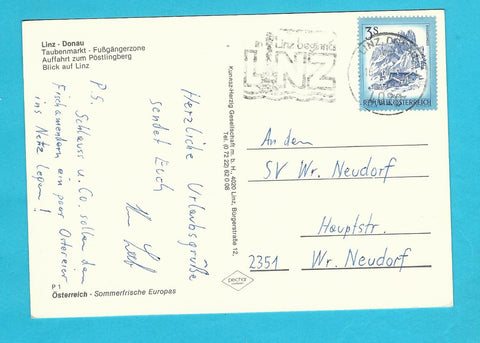 Linz - Donau
Taubenmarkt - Fußgängerzone
Auffahrt zum Pöstlingberg
Blick auf Linz
Herzliche Urlaubsgrüße
sendet Euch
P.S. Schlauss u. Co. sollen dem
Fischamendern ein paar Ostereier
ins Netz legen!
P 1
Österreich - Sommerfrische Europas
Kunnaz-Herzig Gesellschaft m. b. H., 4020 Linz, Bürgerstraße 12,
Tel. (0 72 22)
in Linz beginnt's
LINZ
LINZ, DO
3S
REPUBLIK ÖSTERREICH
An den
SV Wr. Neudorf
Hauptstr.
2351 Wr. Neudorf